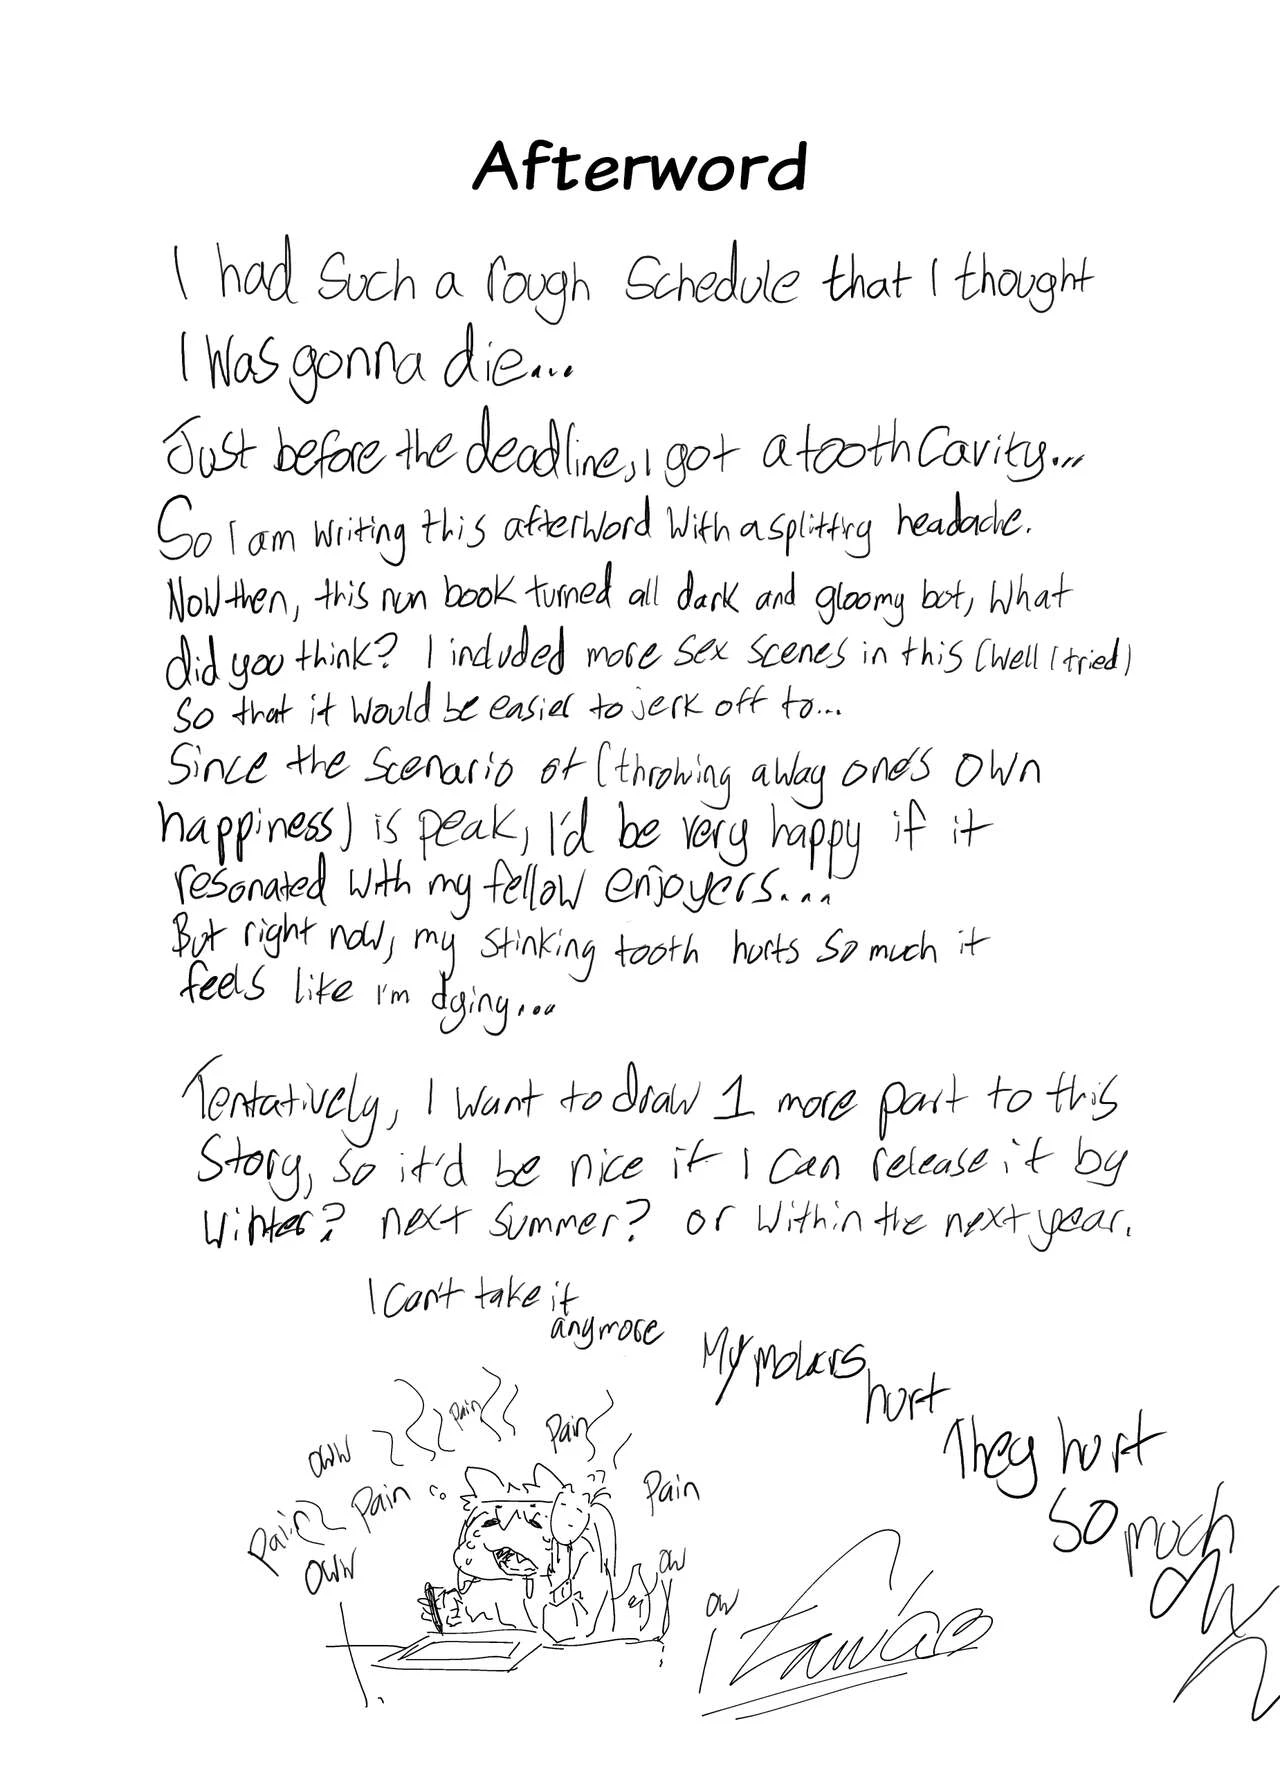 Afterword
I had such a rough schedule that I thought
I was gonna die...
Just before the deadline, I got a tooth cavity...
So I am writing this afterword with a splitting headache.
Now then, this nun book turned all dark and gloomy bot, what
did you think? I included more sex scenes in this (well I tried)
so that it would be easier to jerk off to...
Since the scenario of (throwing away one's own
happiness) is peak, I'd be very happy if it
resonated with my fellow enjoyers...
But right now, my stinking tooth hurts so much it
feels like I'm dying...
Tentatively, I want to draw 1 more part to this
story, so it'd be nice if I can release it by
winter? next summer? or within the next year.
I can't take it
anymore
My molars
hurt
They hurt
so much
oww
pain
pain
pain
pain
pain
oww
ow
ow